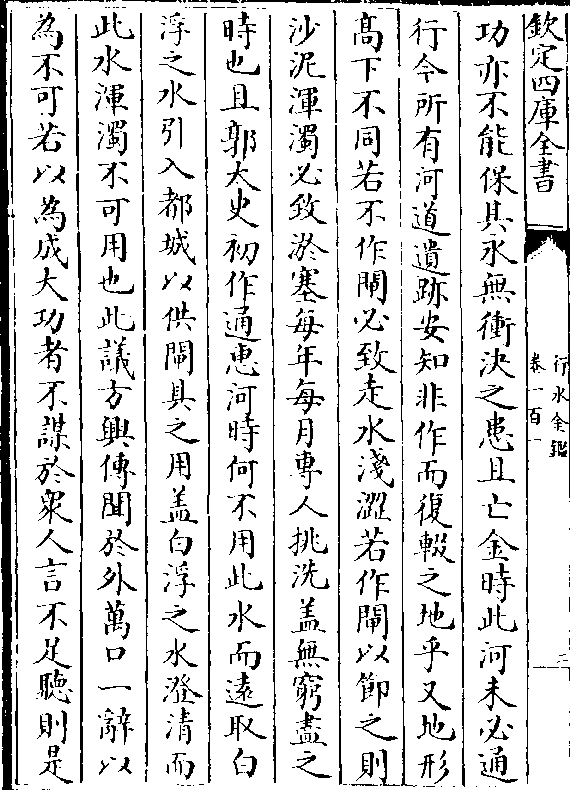 欽定四庫全書
行水金鑑
卷一百一
三
功亦不能保其永無衝決之患且亡金時此河未必通
行今所有河道遺跡安知非作而復輟之地乎又地形
高下不同若不作閘必致走水淺澀若作閘以節之則
沙泥渾濁必致淤塞每年每月專人挑洗盖無窮盡之
時也且郭太史初作通惠河時何不用此水而遠取白
浮之水引入都城以供閘具之用盖白浮之水澄清而
此水渾濁不可用也此議方興傳聞於外萬口一辭以
為不可若以為成大功者不謀於衆人言不足聽則是